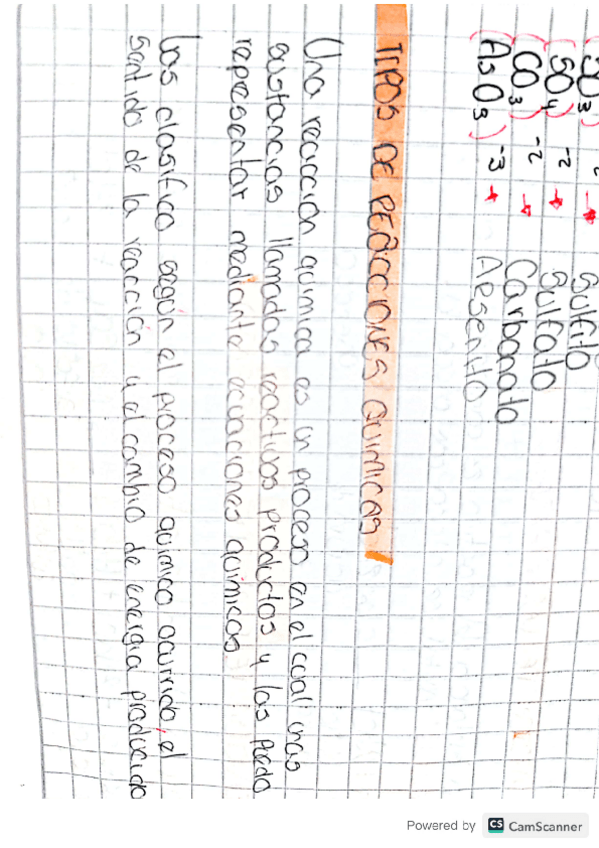 (SO3) -2 → Sulfito
(SO4) -2 → Sulfato
(CO3) -2 → Carbonato
(AsO3) -3 → Arsenito
TIPOS DE REACCIONES QUIMICAS
Una reacción quimica es un proceso en el cual unas
sustancias llamadas reactivos productos y las puedo
representar mediante ecuaciones quimicas
Las clasifico según el proceso quimico ocurrido, el
sentido de la reacción y el cambio de energia producido
Powered by CS CamScanner